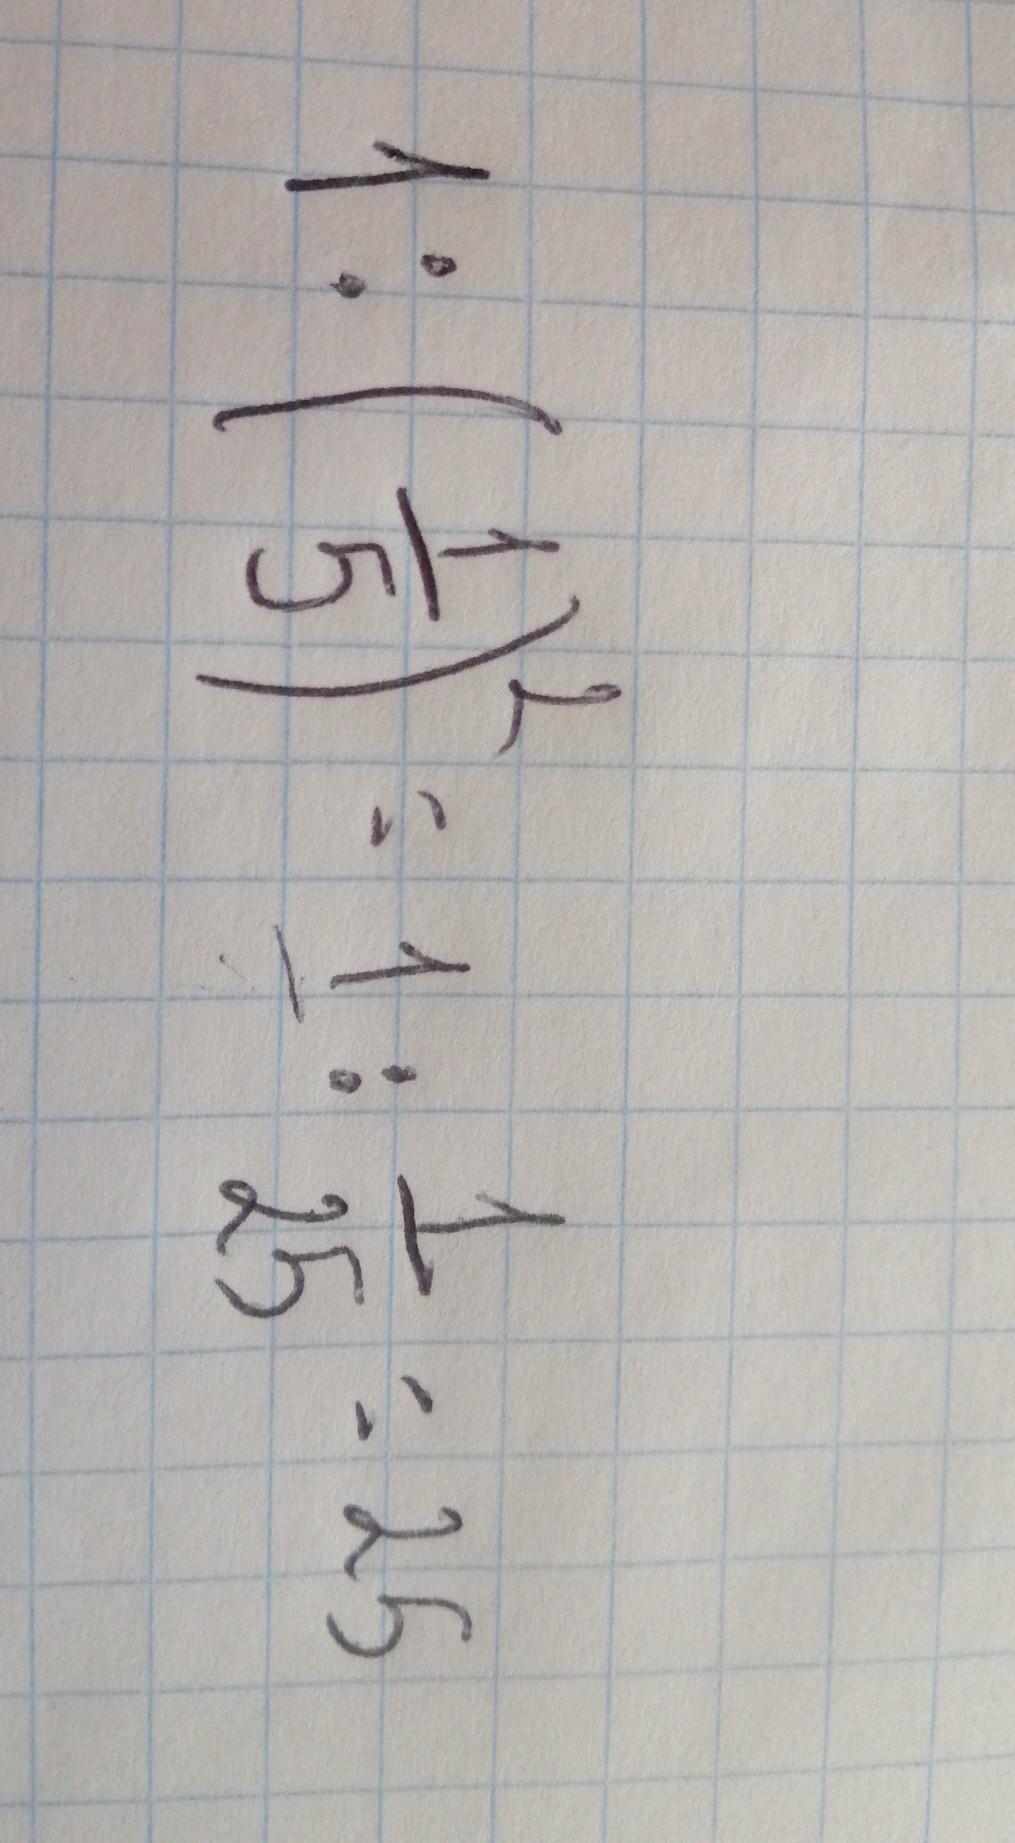 1 : (1/5)² = 1 : 1/25 = 25